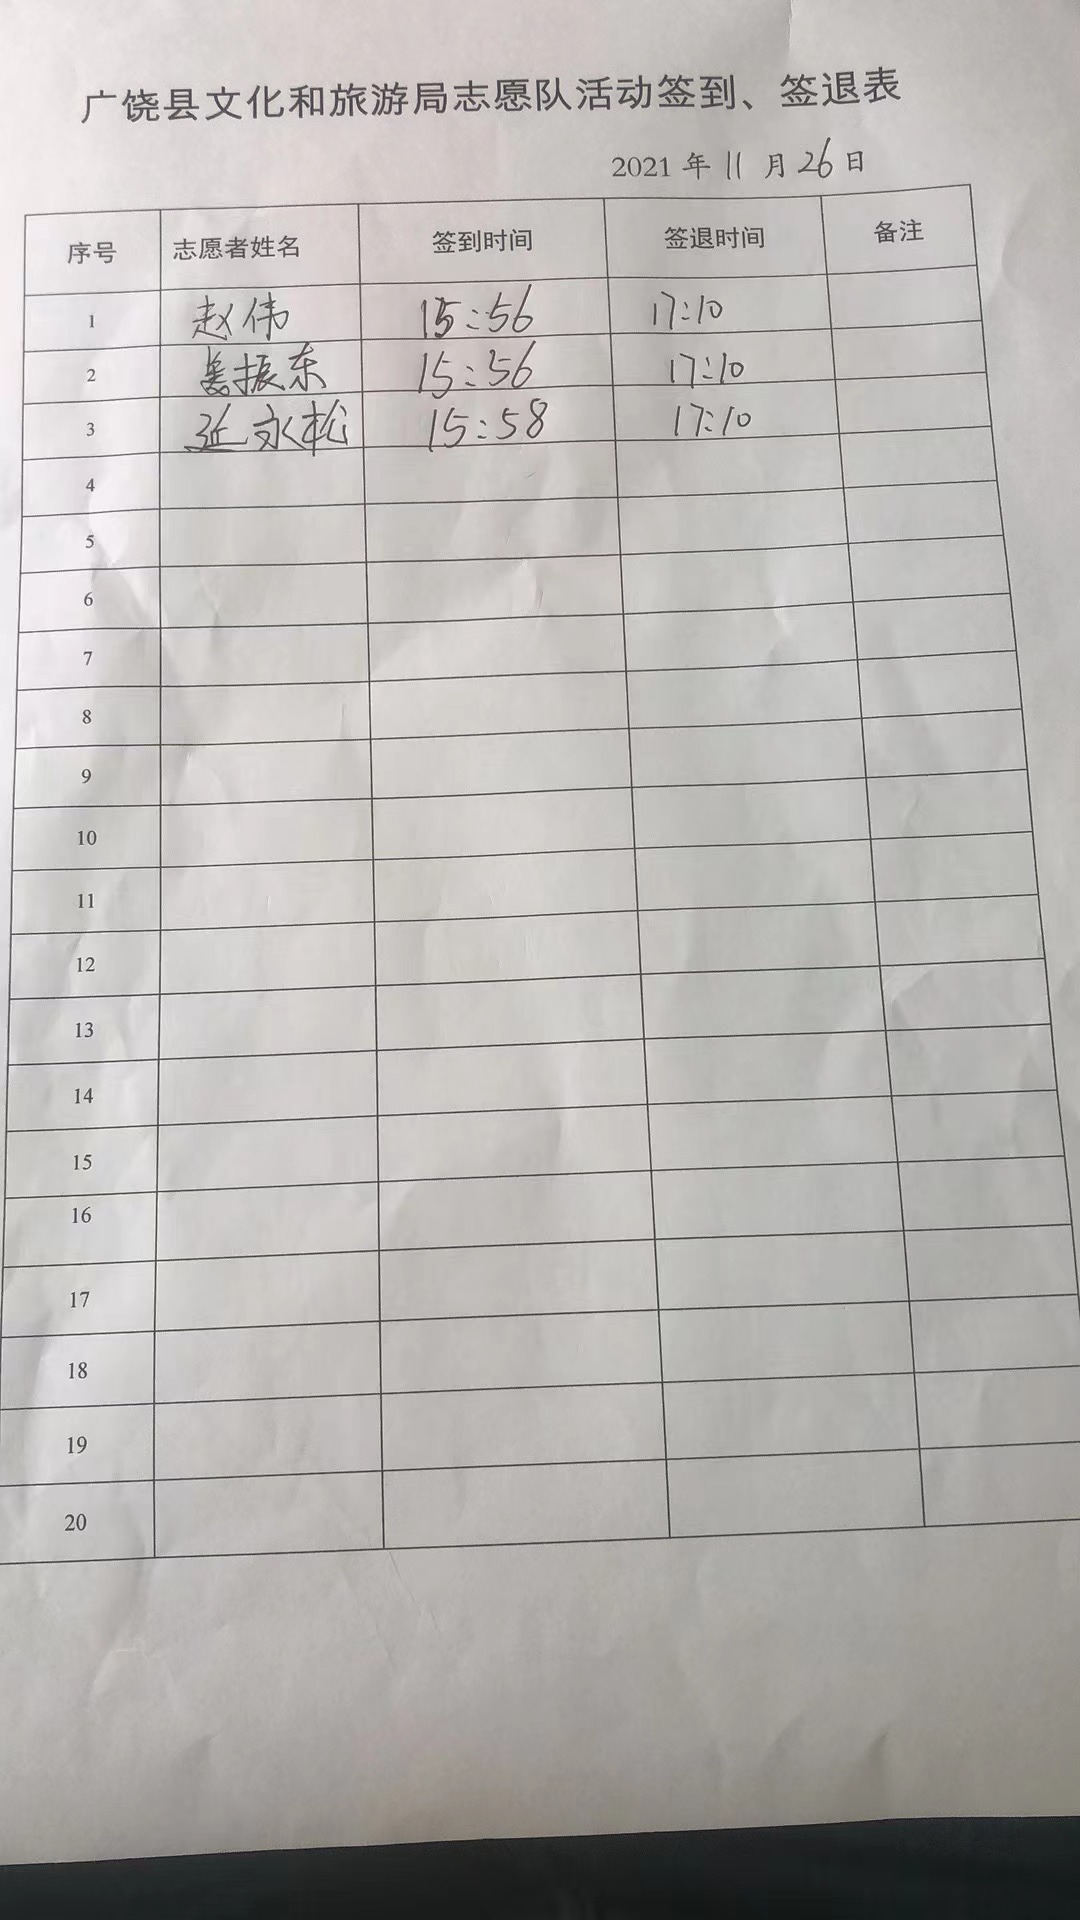 广饶县文化和旅游局志愿队活动签到、签退表
2021 年 11 月 26 日
序号 志愿者姓名 签到时间 签退时间 备注
1 赵伟 15:56 17:10
2 振东 15:56 17:10
3 延永松 15:58 17:10
4
5
6
7
8
9
10
11
12
13
14
15
16
17
18
19
20